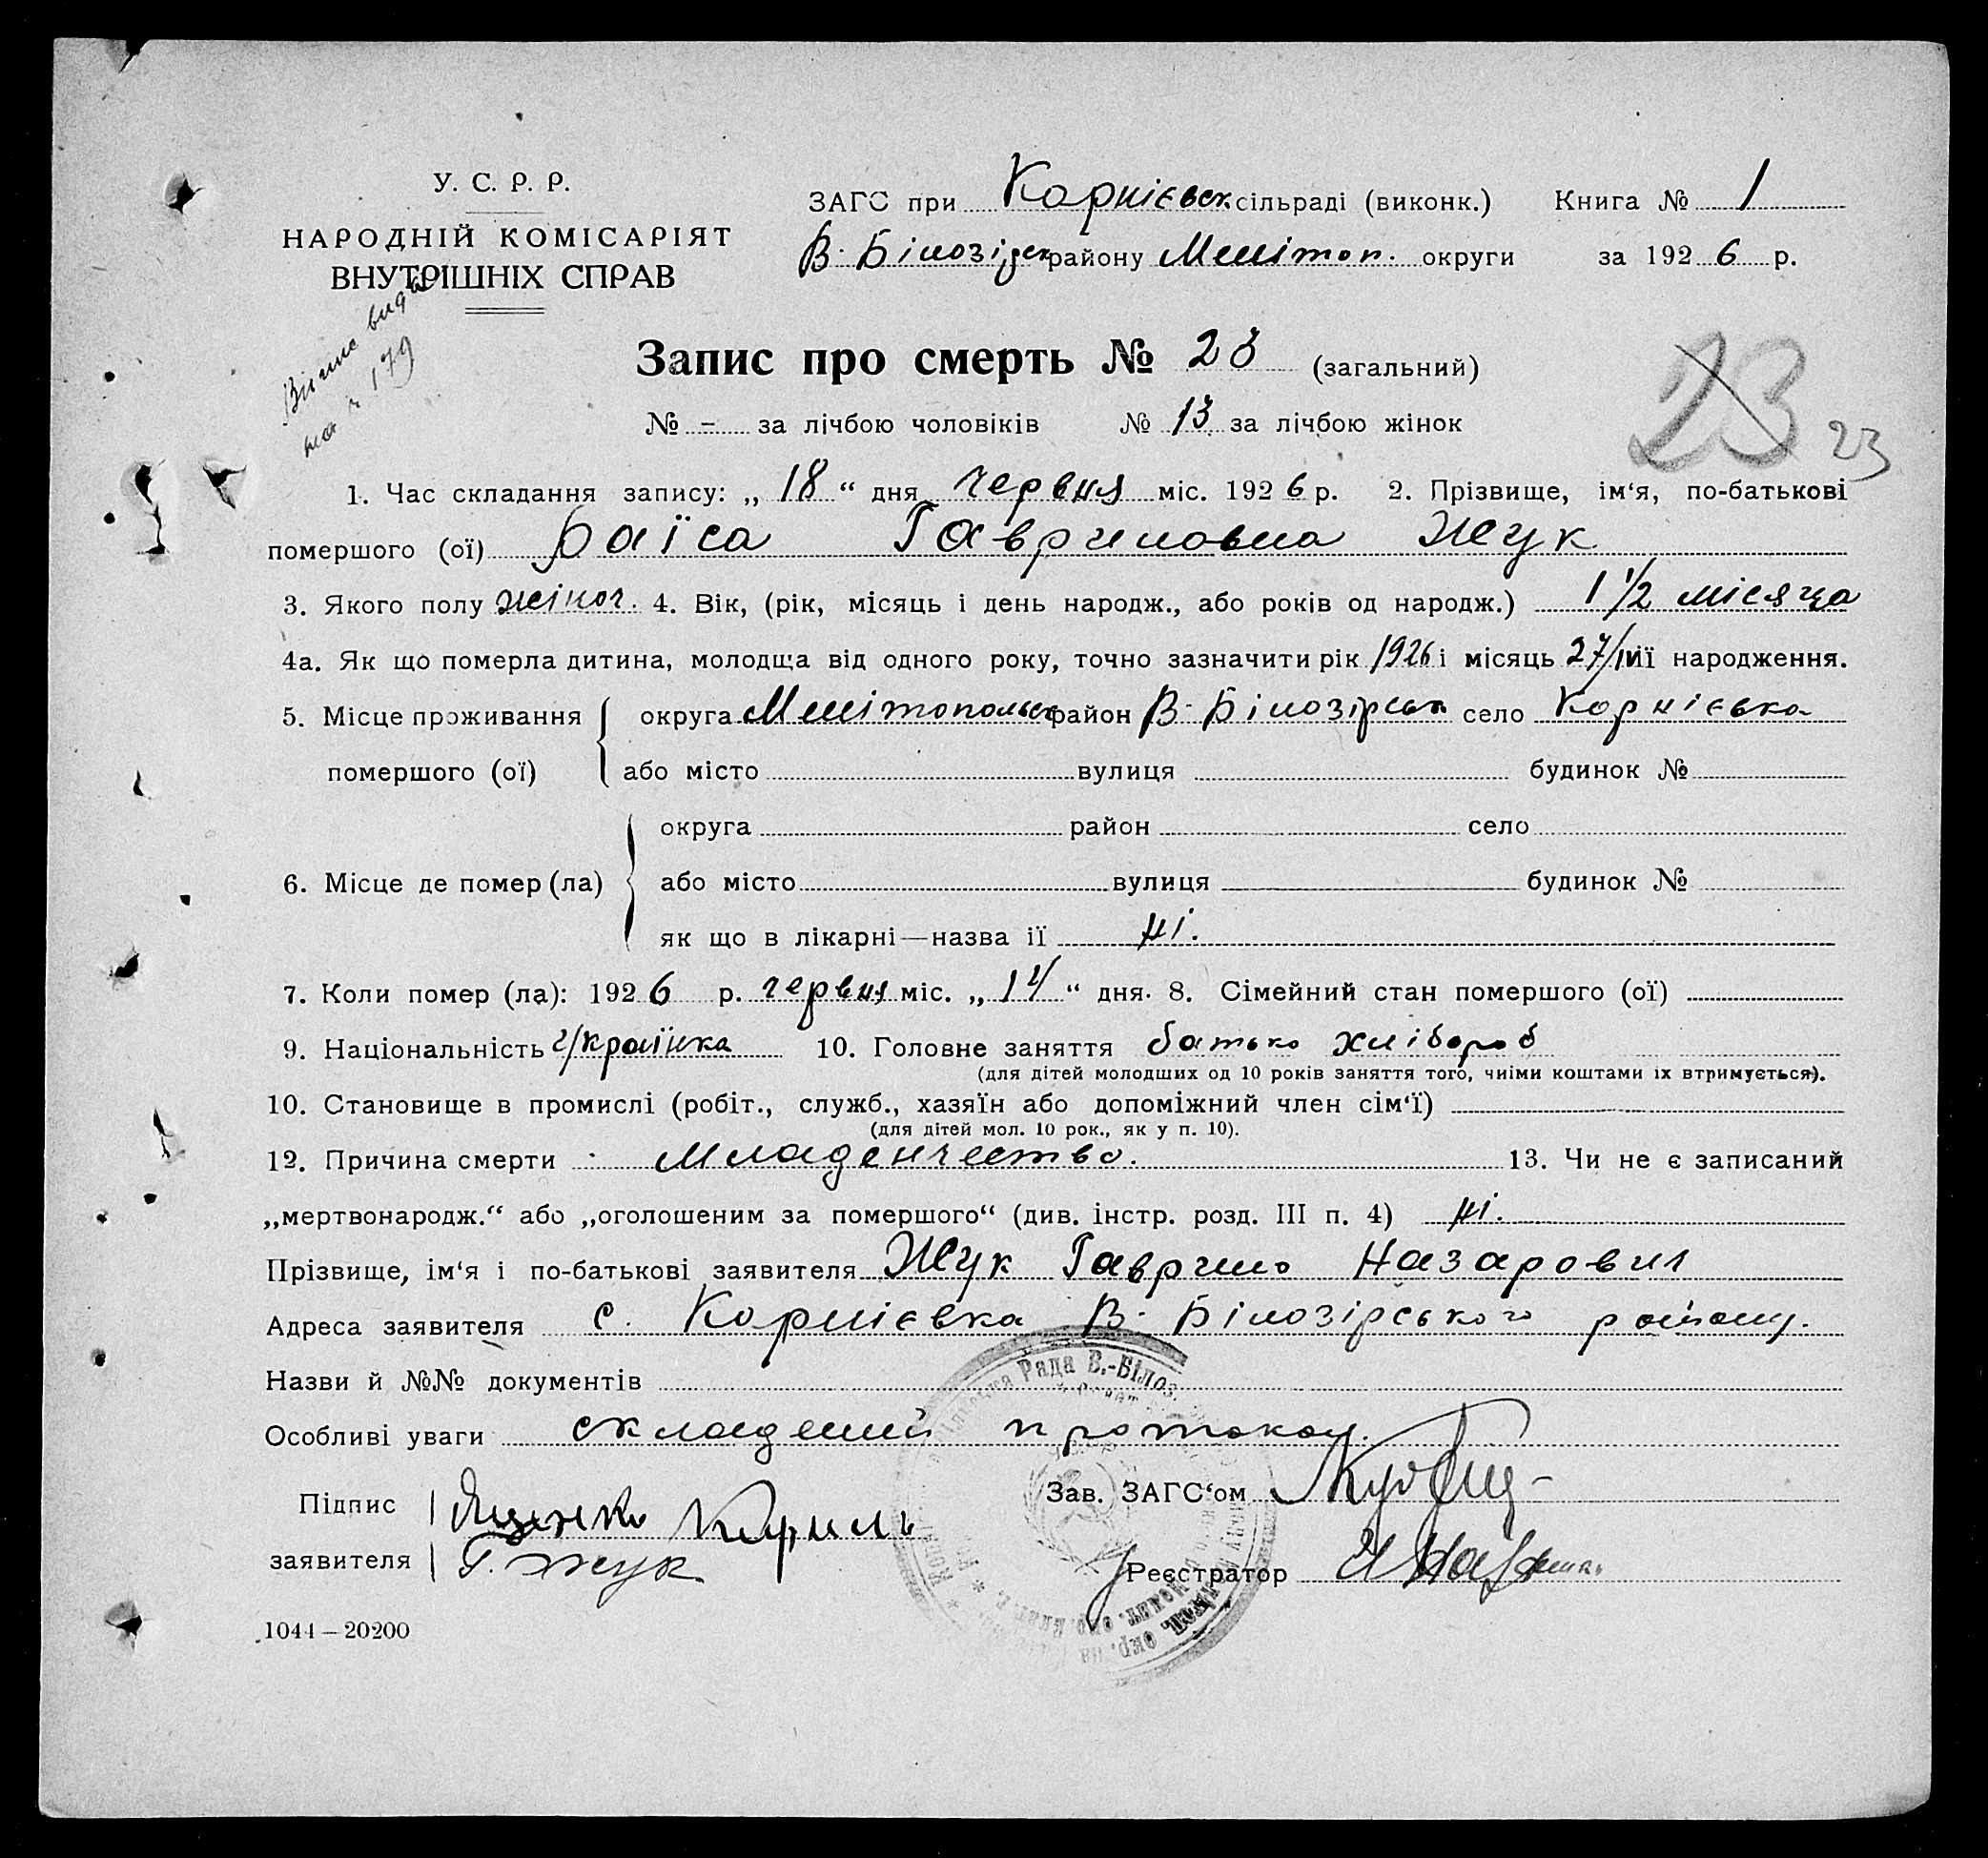 У. С. Р. Р.
НАРОДНІЙ КОМІСАРІЯТ
ВНУТРІШНІХ СПРАВ
ЗАГС при Корнієвск. сільраді (виконк.) Книга № 1
В. Білозірск району Мелітоп. округи за 1926 р.
на 179
Запис про смерть № 23 (загальний)
№ - за лічбою чоловіків № 13 за лічбою жінок
23 23
1. Час складання запису: „ 18 “ дня червня міс. 1926 р. 2. Прізвище, ім‘я, по-батькові
помершого (ої) Раїса Гавриловна Жук
3. Якого полу жіноч. 4. Вік, (рік, місяць і день народж., або років од народж.) 1 1/2 місяця
4а. Як що померла дитина, молодща від одного року, точно зазначити рік 1926 і місяць 27/IV її народження.
5. Місце проживання округа Мелітопольск район В. Білозірськ село Корнієвка
помершого (ої) або місто вулиця будинок №
округа район село
6. Місце де помер (ла) або місто вулиця будинок №
як що в лікарні—назва ії ні.
7. Коли помер (ла): 1926 р. червня міс. „ 14 “ дня. 8. Сімейний стан помершого (ої)
9. Національність Українка 10. Головне заняття батько хлібороб
(для дітей молодших од 10 років заняття того, чиіми коштами іх втримується).
10. Становище в промислі (робіт., служб., хазяїн або допоміжний член сім‘ї)
(для дітей мол. 10 рок., як у п. 10).
12. Причина смерти Младенчество. 13. Чи не є записаний
„мертвонародж.“ або „оголошеним за помершого“ (див. інстр. розд. III п. 4) ні.
Прізвище, ім‘я і по-батькові заявителя Жук Гаврило Назарович
Адреса заявителя с. Корнієвка В. Білозірського району.
Назви й №№ документів
Особливі уваги складений протокол.
Рада В.-Білоз.
Підпис Яценко Кириль
Зав. ЗАГС‘ом
заявителя Г. Жук
Реєстратор
1044—20200